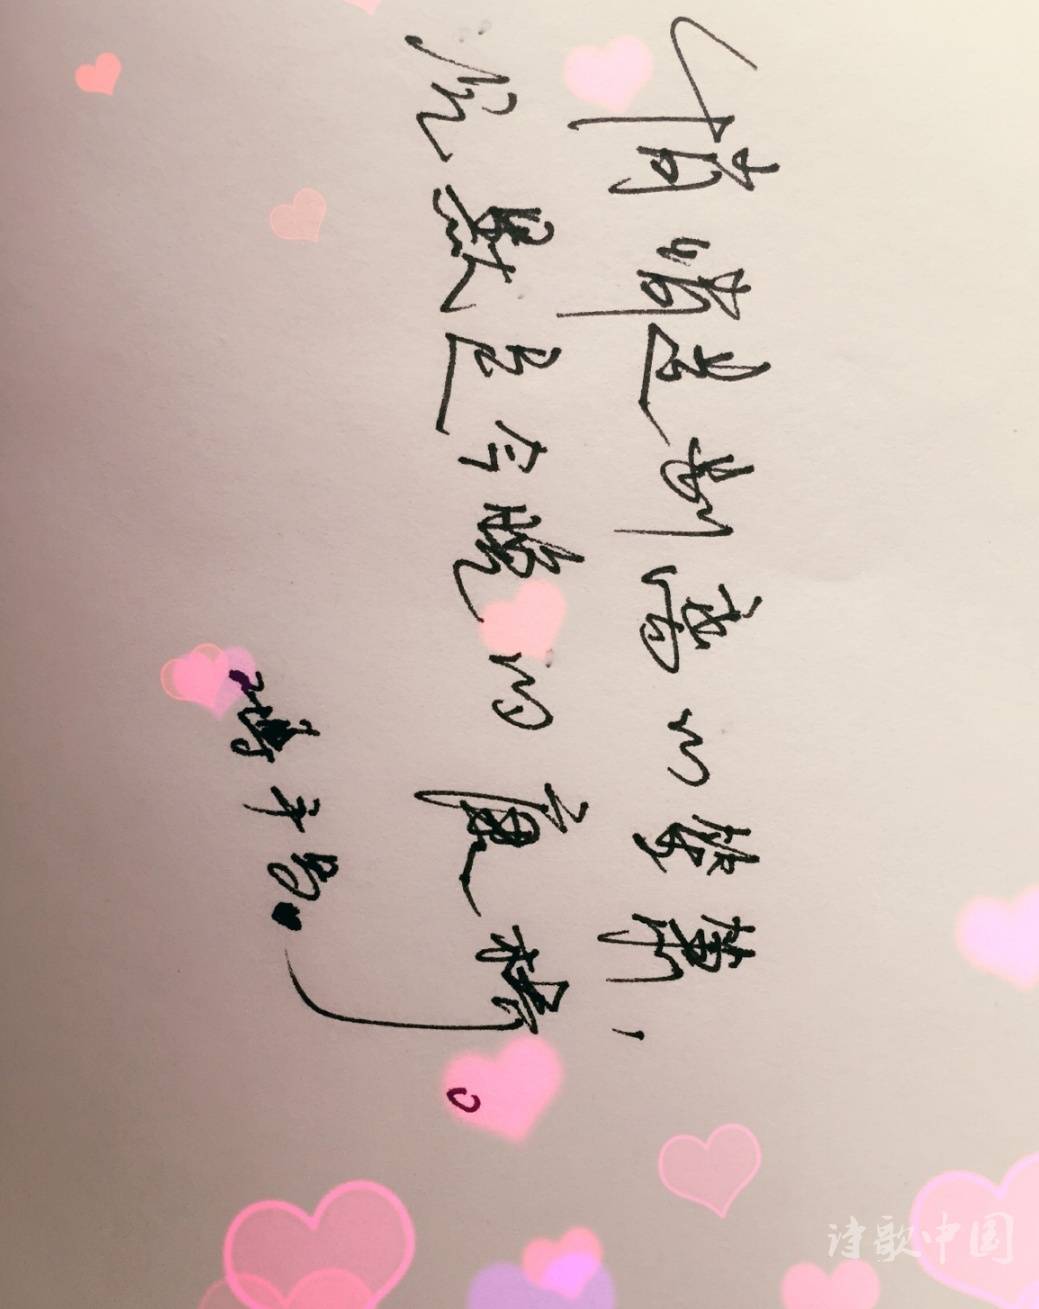 悄悄是别离的笙箫，
沉默是今晚的康桥。
诗歌中国